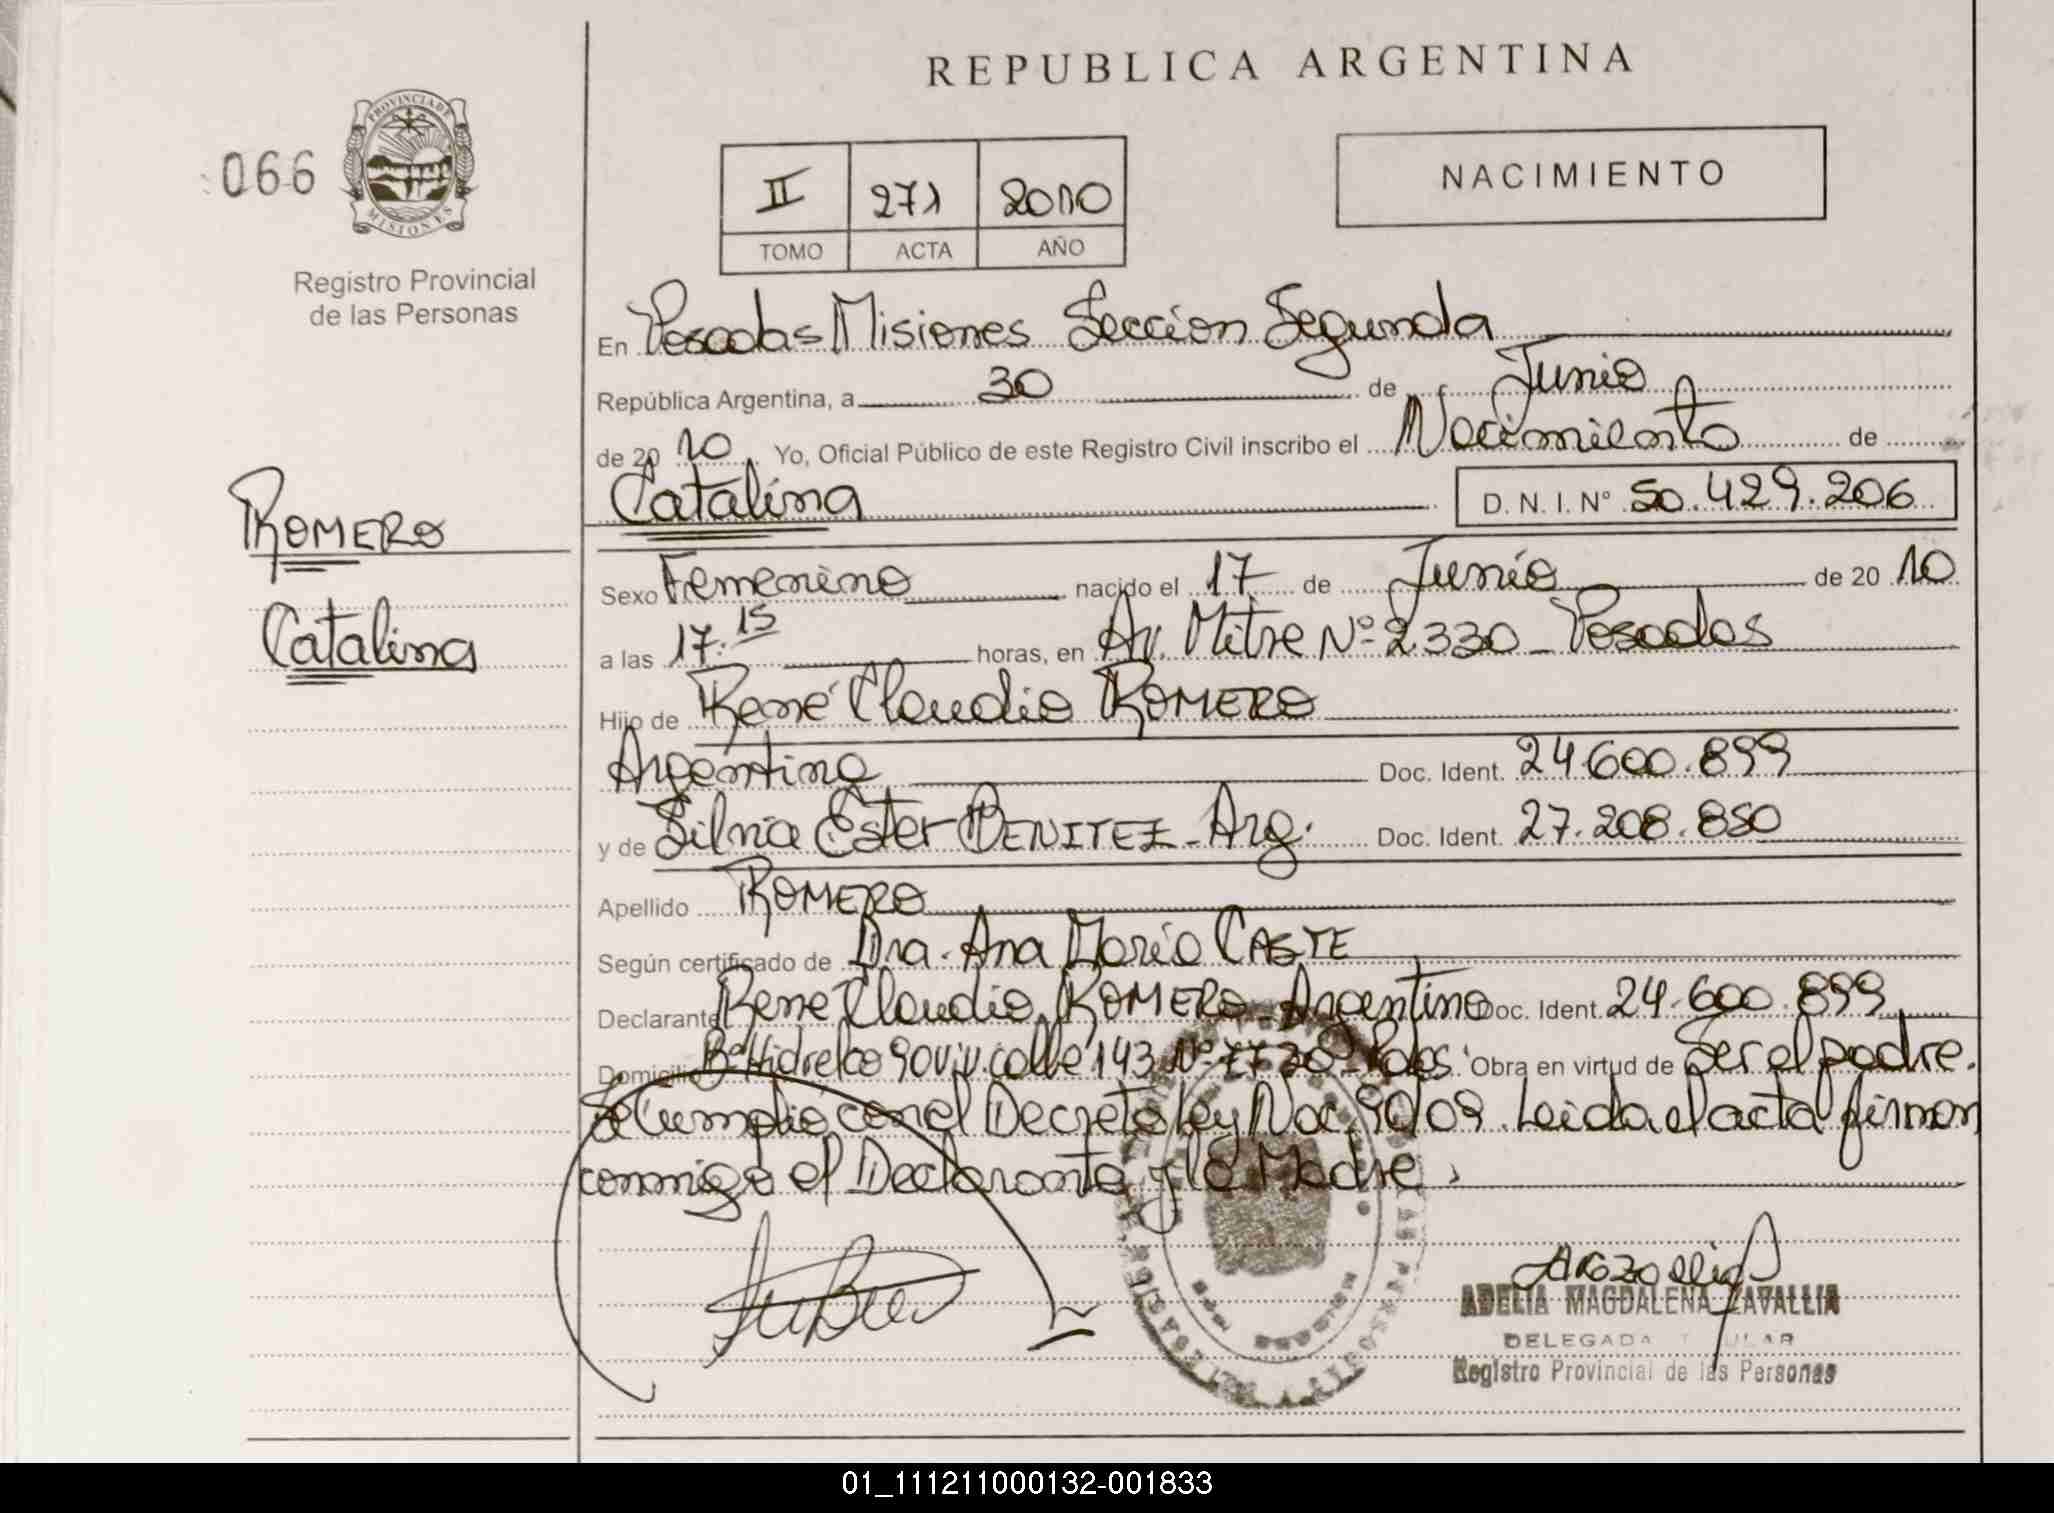 REPUBLICA ARGENTINA
066
PROVINCIA DE
MISIONES
Registro Provincial
de las Personas
II 271 2010
TOMO ACTA AÑO
NACIMIENTO
En Posadas Misiones Seccion Segunda
República Argentina, a 30 de Junio
de 2010 Yo, Oficial Público de este Registro Civil inscribo el Nacimiento de
Catalina D. N. I. Nº 50.429.206
ROMERO
Catalina
Sexo Femenino nacido el 17 de Junio de 2010
a las 17.15 horas, en Av. Mitre Nº 2.330 - Posadas
Hijo de René Claudio ROMERO
Argentino Doc. Ident. 24.600.899
y de Silvia Ester BENITEZ - Arg. Doc. Ident. 27.208.850
Apellido ROMERO
Según certificado de Dra. Ana María CASTE
Declarante René Claudio ROMERO - Argentino Doc. Ident. 24.600.899
Domicilio Bº Hidrelco 90 viv. calle 143 Nº 7720 - Pdas. Obra en virtud de Ser el padre.
Se Cumplio con el Decreto Ley Nac. 90/09. Leida el acta firman
conmigo el Declarante y la Madre.
ADELIA MAGDALENA ZAVALLIA
DELEGADA TITULAR
Registro Provincial de las Personas
01_111211000132-001833